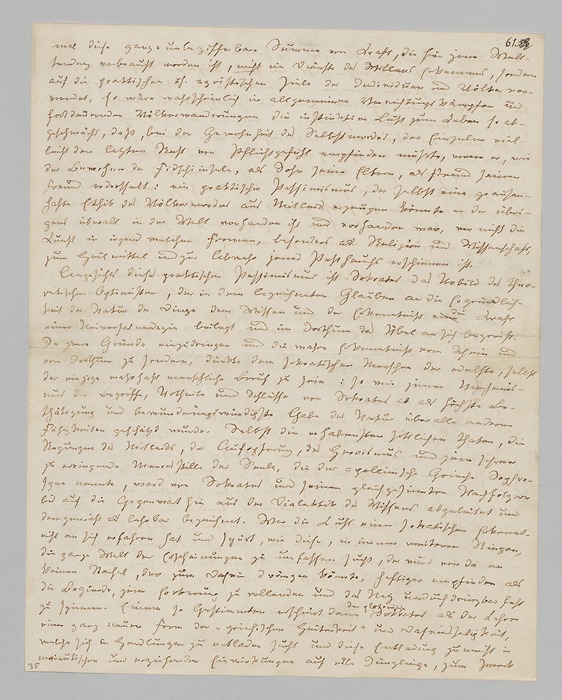 61.
mal diese ganze unbezifferbare Summe von Kraft, die für jene Welt-
tendenz verbraucht worden ist, nicht im Dienste des Erkennens, sondern
auf die praktischen d. h. egoistischen Ziele der Individuen und Völker ver-
wendet, so wäre wahrscheinlich in allgemeinen Vernichtungskämpfen und
fortdauernden Völkerwanderungen die instinktive Lust zum Leben so ab-
geschwächt, daß, bei der Gewohnheit des Selbstmordes, der Einzelne viel-
leicht den letzten Rest von Pflichtgefühl empfinden müßte, wenn er, wie
der Bewohner der Fidschiinseln, als Sohn seine Eltern, als Freund seinen
Freund erdrosselt: ein praktischer Pessimismus, der selbst eine grausen-
hafte Ethik des Völkermordes aus Mitleid erzeugen könnte u. der übri-
gens überall in der Welt vorhanden ist und vorhanden war, wo nicht die
Kunst in irgend welchen Formen, besonders als Religion und Wissenschaft,
zum Heilmittel und zur Abwehr jenes Pesthauchs erschienen ist.
Angesichts dieses praktischen Pessimismus ist Sokrates das Urbild des theo-
retischen Optimisten, der in dem bezeichneten Glauben an die Ergründlich-
keit der Natur der Dinge dem Wissen und der Erkenntniß die Kraft
einer Universalmedizin beilegt und im Irrthum das Übel an sich begreift.
In jene Gründe einzudringen und die wahre Erkenntniß vom Schein und
vom Irrthum zu sondern, dünkte dem sokratischen Menschen der edelste, selbst
der einzige wahrhaft menschliche Beruf zu sein: so wie jener Mechanis-
mus der Begriffe, Urtheile und Schlüsse von Sokrates ab als höchste Be-
thätigung und bewunderungswürdigste Gabe der Natur über alle anderen
Fähigkeiten geschätzt wurde. Selbst die erhabensten sittlichen Thaten, die
Regungen des Mitleids, der Aufopferung, des Heroismus und jene schwer
zu erringende Meeresstille der Seele, die der apollinische Grieche Sophro-
syne nannte, ward von Sokrates und seinen gleichgesinnten Nachfolgern
bis auf die Gegenwart hin aus der Dialektik des Wissens abgeleitet und
demgemäß als lehrbar bezeichnet. Wer die Lust einer sokratischen Erkennt-
niß an sich erfahren hat und spürt, wie diese, in immer weiteren Ringen,
die ganze Welt der Erscheinungen zu umfassen sucht, der wird von da an
keinen Stachel, der zum Dasein drängen könnte, heftiger empfinden als
die Begierde, jene Eroberung zu vollenden und das Netz undurchdringbar fest
zu spinnen. Einem so Gestimmten erscheint dann der platonische Sokrates als der Lehrer
einer ganz neuen Form der „griechischen Heiterkeit“ und Daseinsseligkeit,
welche sich in Handlungen zu entladen sucht und diese Entladung zumeist in
maieutischen und erziehenden Einwirkungen auf edle Jünglinge, zum Zweck
35